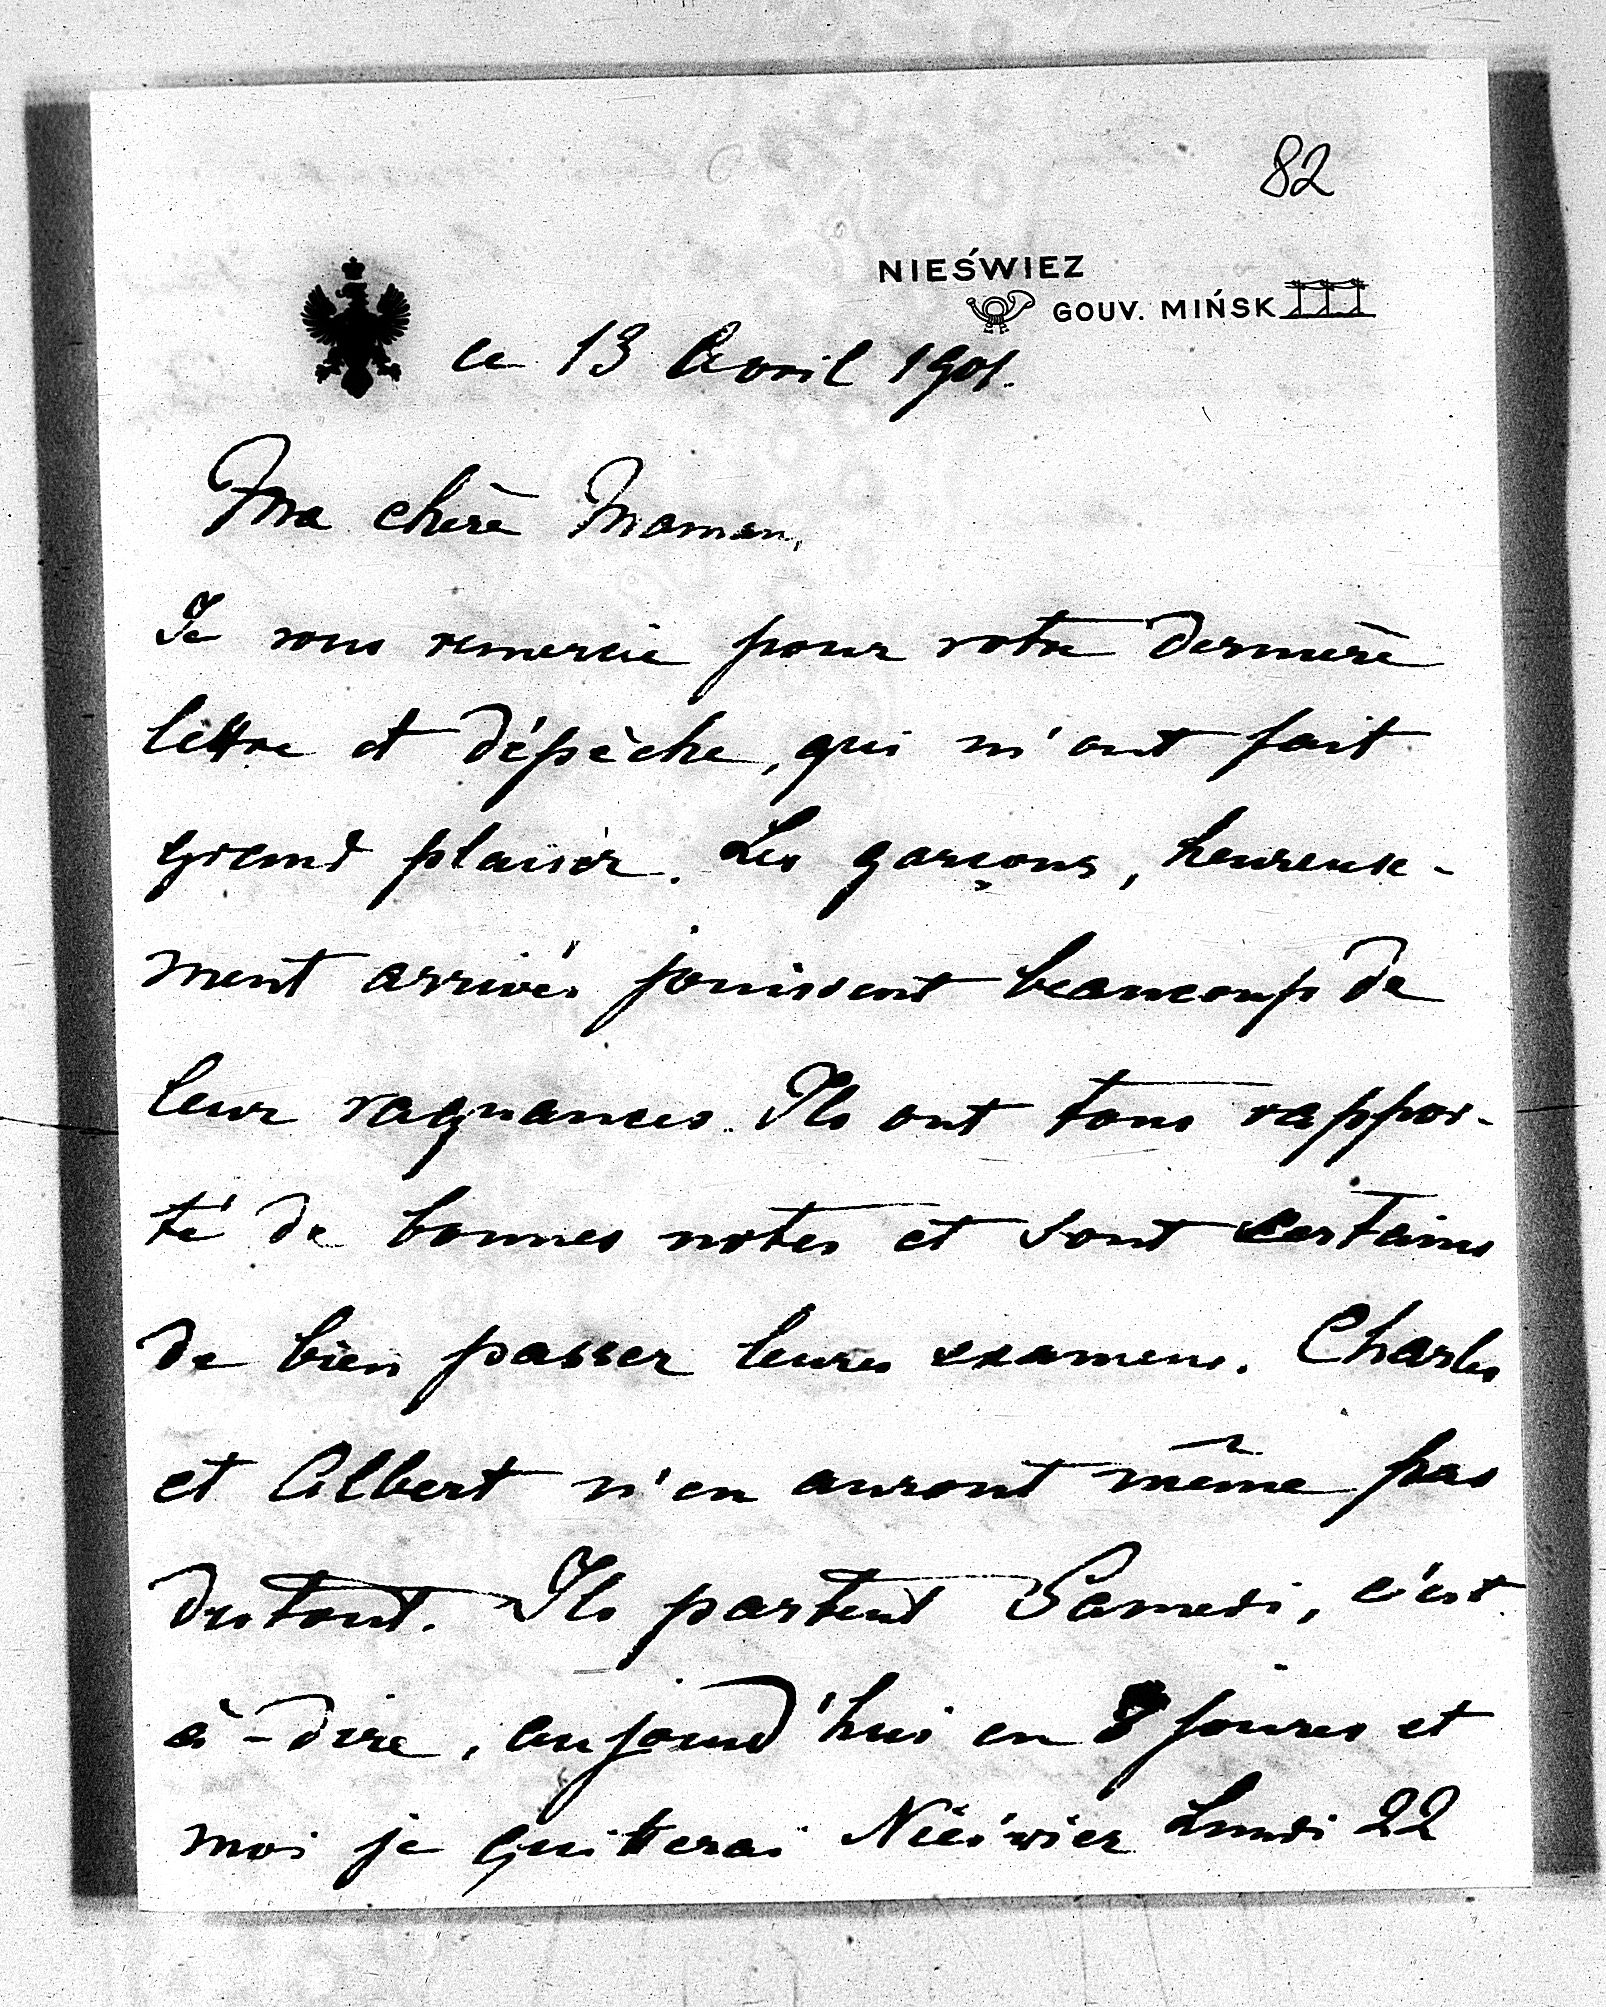 82
NIEŚWIEZ
GOUV. MIŃSK
ce 13 Avril 1901.
Ma chère Maman,
Je vous remercie pour votre dernière
lettre et dépèche, qui m'ont fait
grand plaisir. Les garçons, heureuse-
ment arrivés jouissent beaucoup de
leur vaquances. Ils ont tous rappor-
té de bonnes notes et sont certains
de bien passer leures examens. Charles
et Albert n'en auront même pas
du tout. Ils partent Samedi, c'est
à-dire, aujourd'hui en 8 joures et
moi je quitterai Nieświez Lundi 22